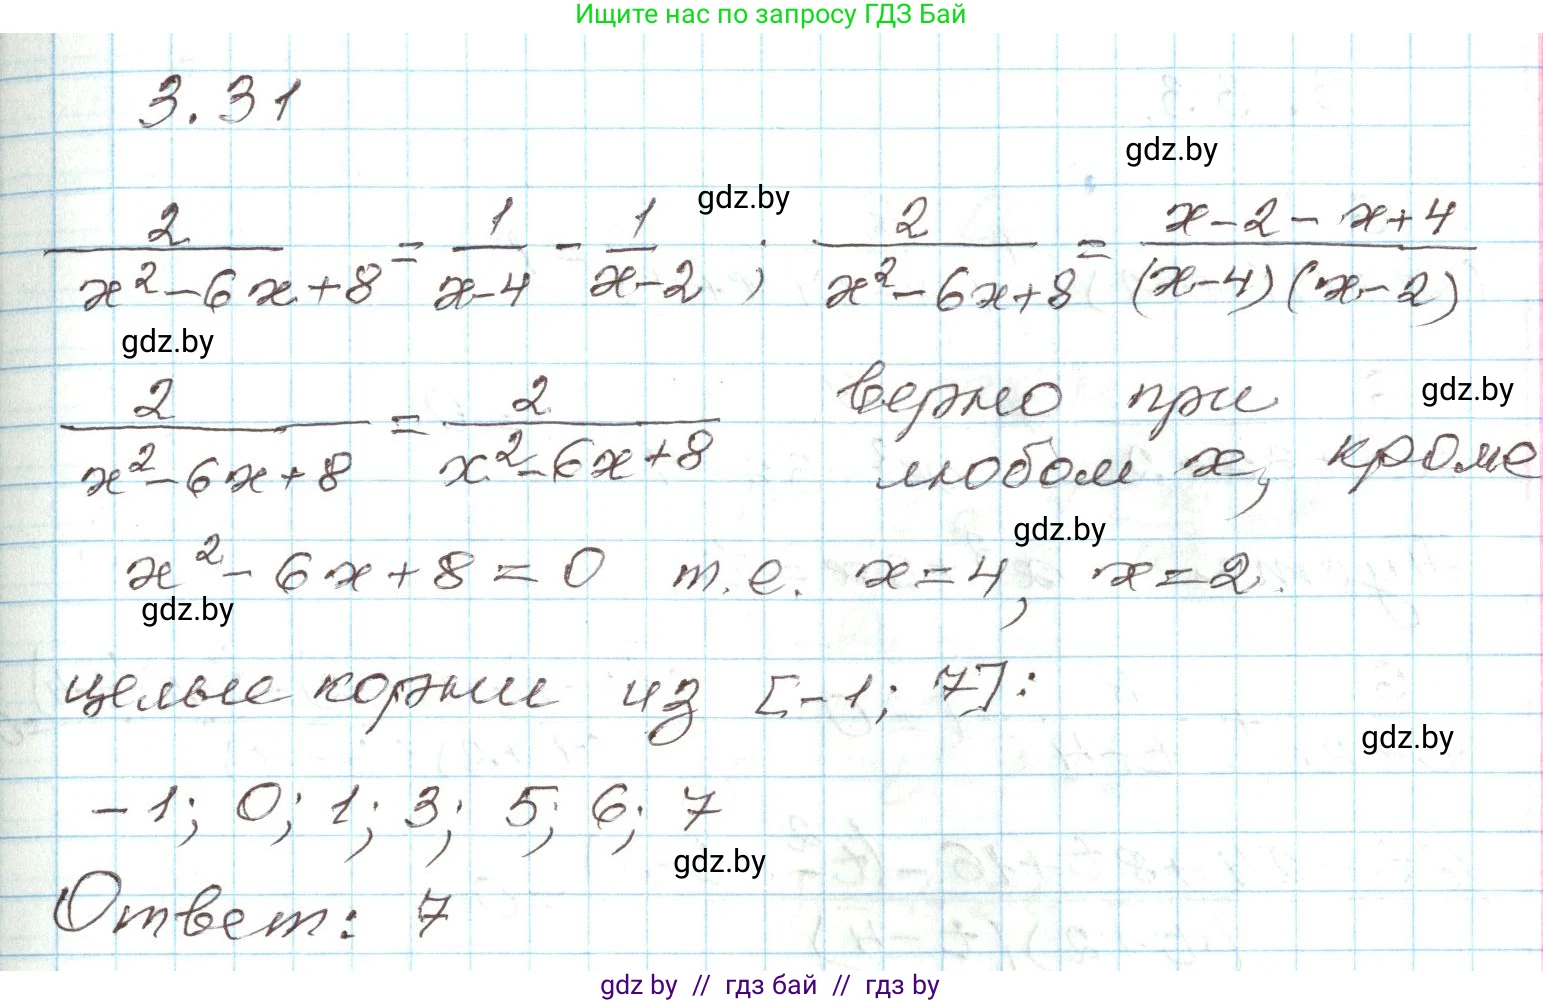 Ищите нас по запросу ГДЗ Бай
3.31
gdz.by
gdz.by
2/(x²-6x+8) = 1/(x-4) - 1/(x-2) ; 2/(x²-6x+8) = (x-2-x+4)/((x-4)(x-2))
gdz.by
2/(x²-6x+8) = 2/(x²-6x+8) верно при
gdz.by
любом x, кроме
gdz.by
x²-6x+8=0 т.е. x=4, x=2.
gdz.by
целые корни из [-1; 7]:
gdz.by
-1; 0; 1; 3; 5; 6; 7
gdz.by
Ответ: 7
gdz by // гдз бай // гдз by